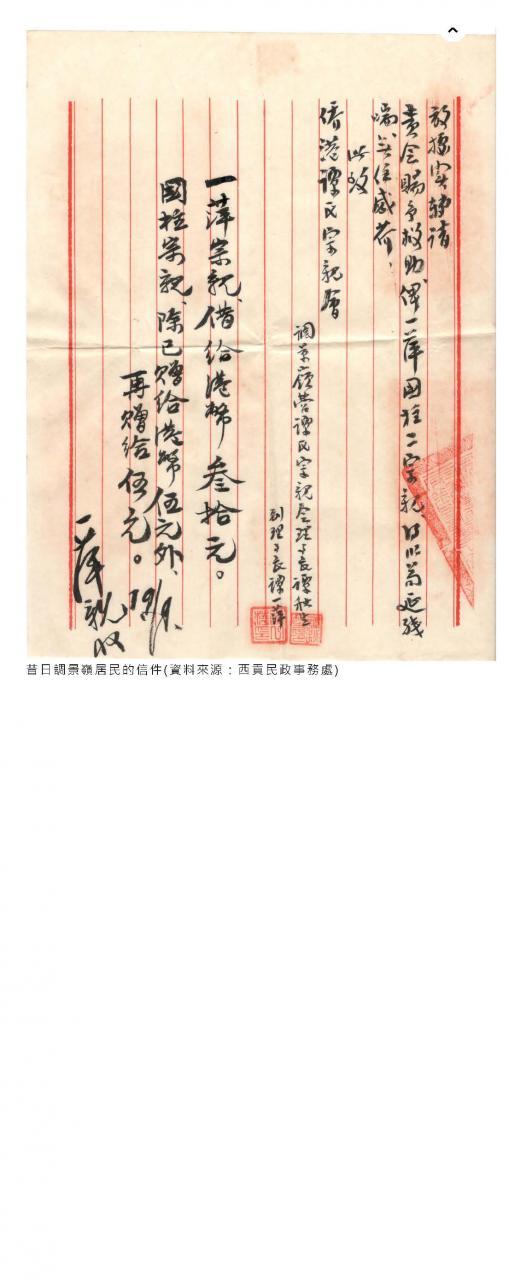 敬據實轉請
貴會賜予救助俾一萍國桂二宗親得以苟延殘
喘無任感荷、
此致
僑港譚氏宗親會
調景嶺營譚氏宗親會理事長譚秋生
副理事長譚一萍
一萍宗親、借給港幣叁拾元。
國桂宗親、除已贈給港幣伍元外、
再贈給伍元。
19/9.
昔日調景嶺居民的信件(資料來源：西貢民政事務處)